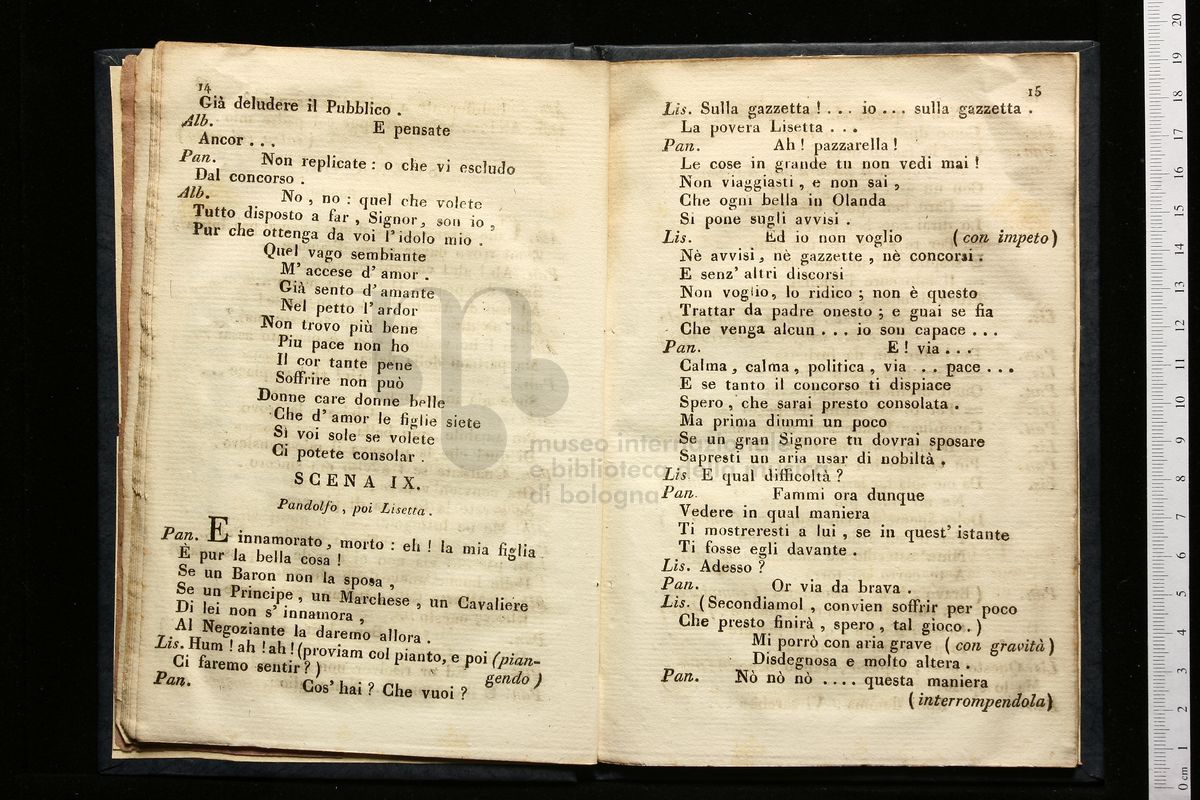 14
Già deludere il Pubblico .
Alb. E pensate
Ancor . . .
Pan. Non replicate : o che vi escludo
Dal concorso .
Alb. No , no : quel che volete
Tutto disposto a far , Signor, son io ,
Pur che ottenga da voi l'idolo mio .
Quel vago sembiante
M' accese d' amor .
Già sento d'amante
Nel petto l'ardor
Non trovo più bene
Piu pace non ho
Il cor tante pene
Soffrire non può
Donne care donne belle
Che d'amor le figlie siete
Sì voi sole se volete
Ci potete consolar .
SCENA IX.
Pandolfo , poi Lisetta .
Pan. E innamorato , morto : eh ! la mia figlia
E pur la bella cosa !
Se un Baron non la sposa ,
Se un Principe , un Marchese , un Cavaliere
Di lei non s' innamora ,
Al Negoziante la daremo allora .
Lis. Hum ! ah ! ah ! (proviam col pianto, e poi (pian-
Ci faremo sentir ? ) gendo )
Pan. Cos' hai ? Che vuoi ?
15
Lis. Sulla gazzetta ! . . . io . . . sulla gazzetta .
La povera Lisetta . . .
Pan. Ah ! pazzarella !
Le cose in grande tu non vedi mai !
Non viaggiasti , e non sai ,
Che ogni bella in Olanda
Si pone sugli avvisi .
Lis. Ed io non voglio (con impeto)
Nè avvisi , nè gazzette , nè concorsi .
E senz' altri discorsi
Non voglio, lo ridico ; non è questo
Trattar da padre onesto ; e guai se fia
Che venga alcun . . . io son capace . . .
Pan. E ! via . . .
Calma , calma , politica , via . . pace . . .
E se tanto il concorso ti dispiace
Spero , che sarai presto consolata .
Ma prima dimmi un poco
Se un gran Signore tu dovrai sposare
Sapresti un aria usar di nobiltà .
Lis. E qual difficoltà ?
Pan. Fammi ora dunque
Vedere in qual maniera
Ti mostreresti a lui , se in quest' istante
Ti fosse egli davante .
Lis. Adesso ?
Pan. Or via da brava .
Lis. (Secondiamol , convien soffrir per poco
Che presto finirà , spero , tal gioco . )
Mi porrò con aria grave ( con gravità )
Disdegnosa e molto altera .
Pan. Nò nò nò . . . . questa maniera
(interrompendola)
museo internazionale
e biblioteca della musica
di bologna
0 cm 1 2 3 4 5 6 7 8 9 10 11 12 13 14 15 16 17 18 19 20